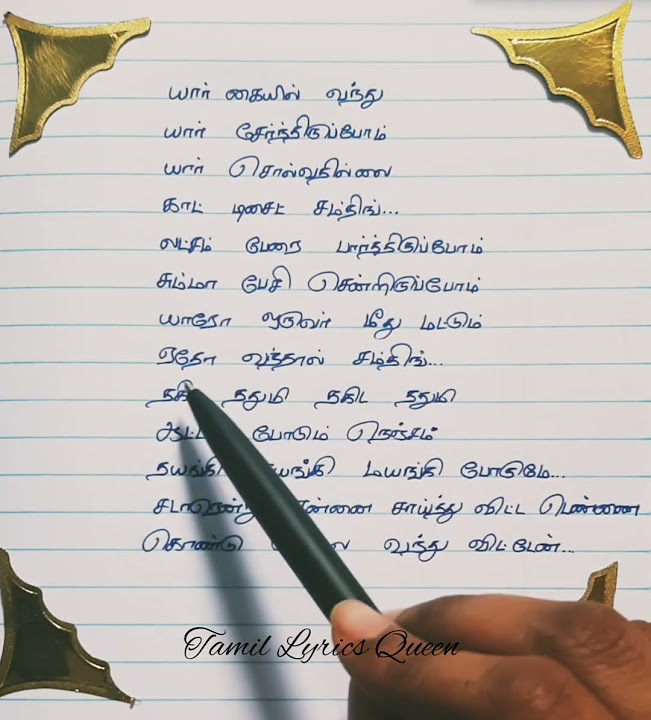 யார் கையில் வந்து
யார் சேர்ந்திருப்போம்
யார் சொல்வதில்லை
காட் டிசைட் சம்திங்...
லட்சம் பேரை பார்த்திருப்போம்
சும்மா பேசி சென்றிருப்போம்
யாரோ ஒருவர் மீது மட்டும்
ஏதோ வந்தால் சம்திங்...
நதுமி நகிட நதுமி
போடும் நெஞ்சம்
மயங்கி போடுமே...
சாய்த்து விட்ட பெண்ணை
கொண்டு வந்து விட்டேன்...
Tamil Lyrics Queen